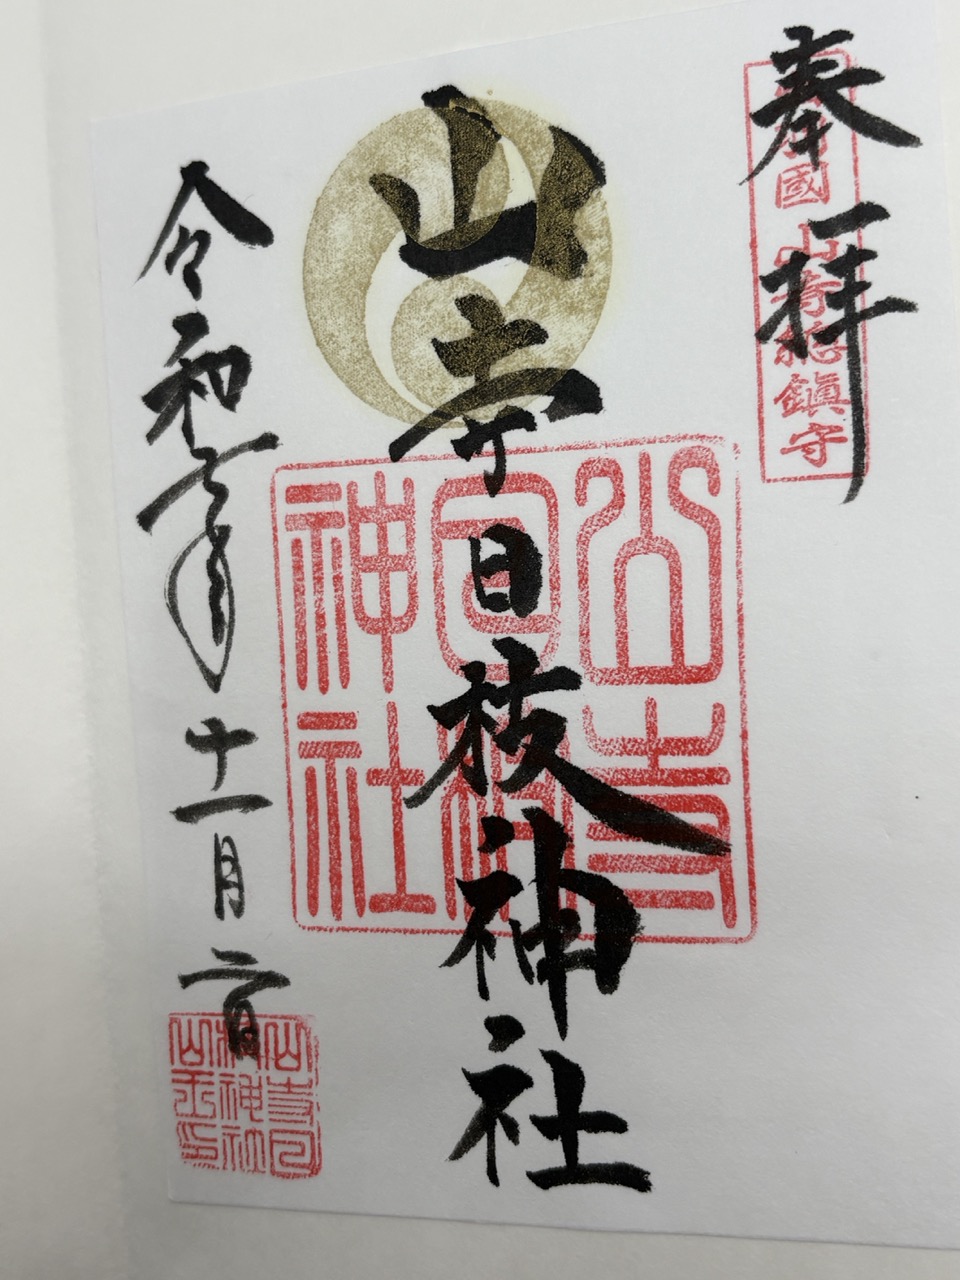 奉拝
國 山寺總鎮守
山寺日枝神社
山寺日枝神社
令和年十一月二日
山寺日枝神社山王印